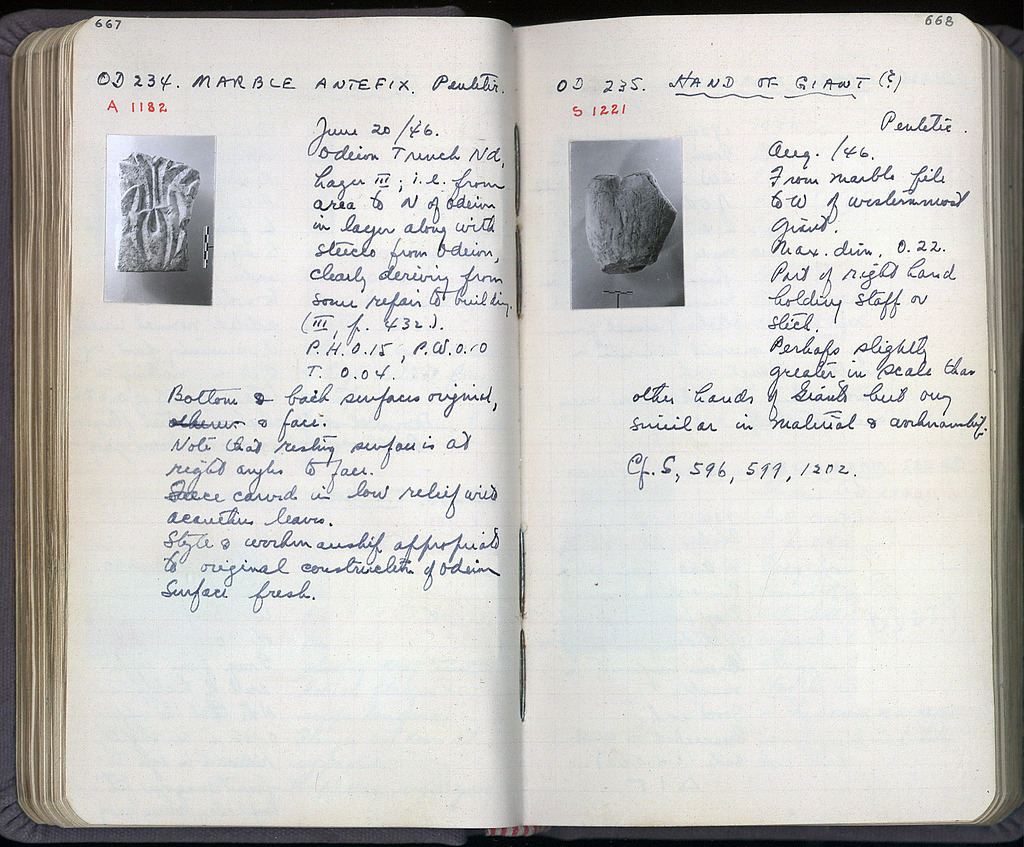 667
OD 234. MARBLE ANTEFIX. Pentelic.
A 1182
June 20/46.
Odeion Trench Nd,
Layer III; i.e. from
area to N of Odeion
in layer along with
stucco from Odeion,
clearly deriving from
some repair to building.
(III, p. 432).
P.H. 0.15, P.W. 0.10
T. 0.04.
Bottom & back surfaces original,
& face.
Note that resting surface is at
right angles to face.
carved in low relief with
acanthus leaves.
Style & workmanship appropriate
to original construction of Odeion
Surface fresh.
668
OD 235. HAND OF GIANT (?)
S 1221
Pentelic.
Aug. /46.
From marble pile
to W of westernmost
giant.
Max. dim. 0.22.
Part of right hand
holding staff or
stick.
Perhaps slightly
greater in scale than
other hands of Giants but
similar in material & workmanship.
Cf. S, 596, 599, 1202.